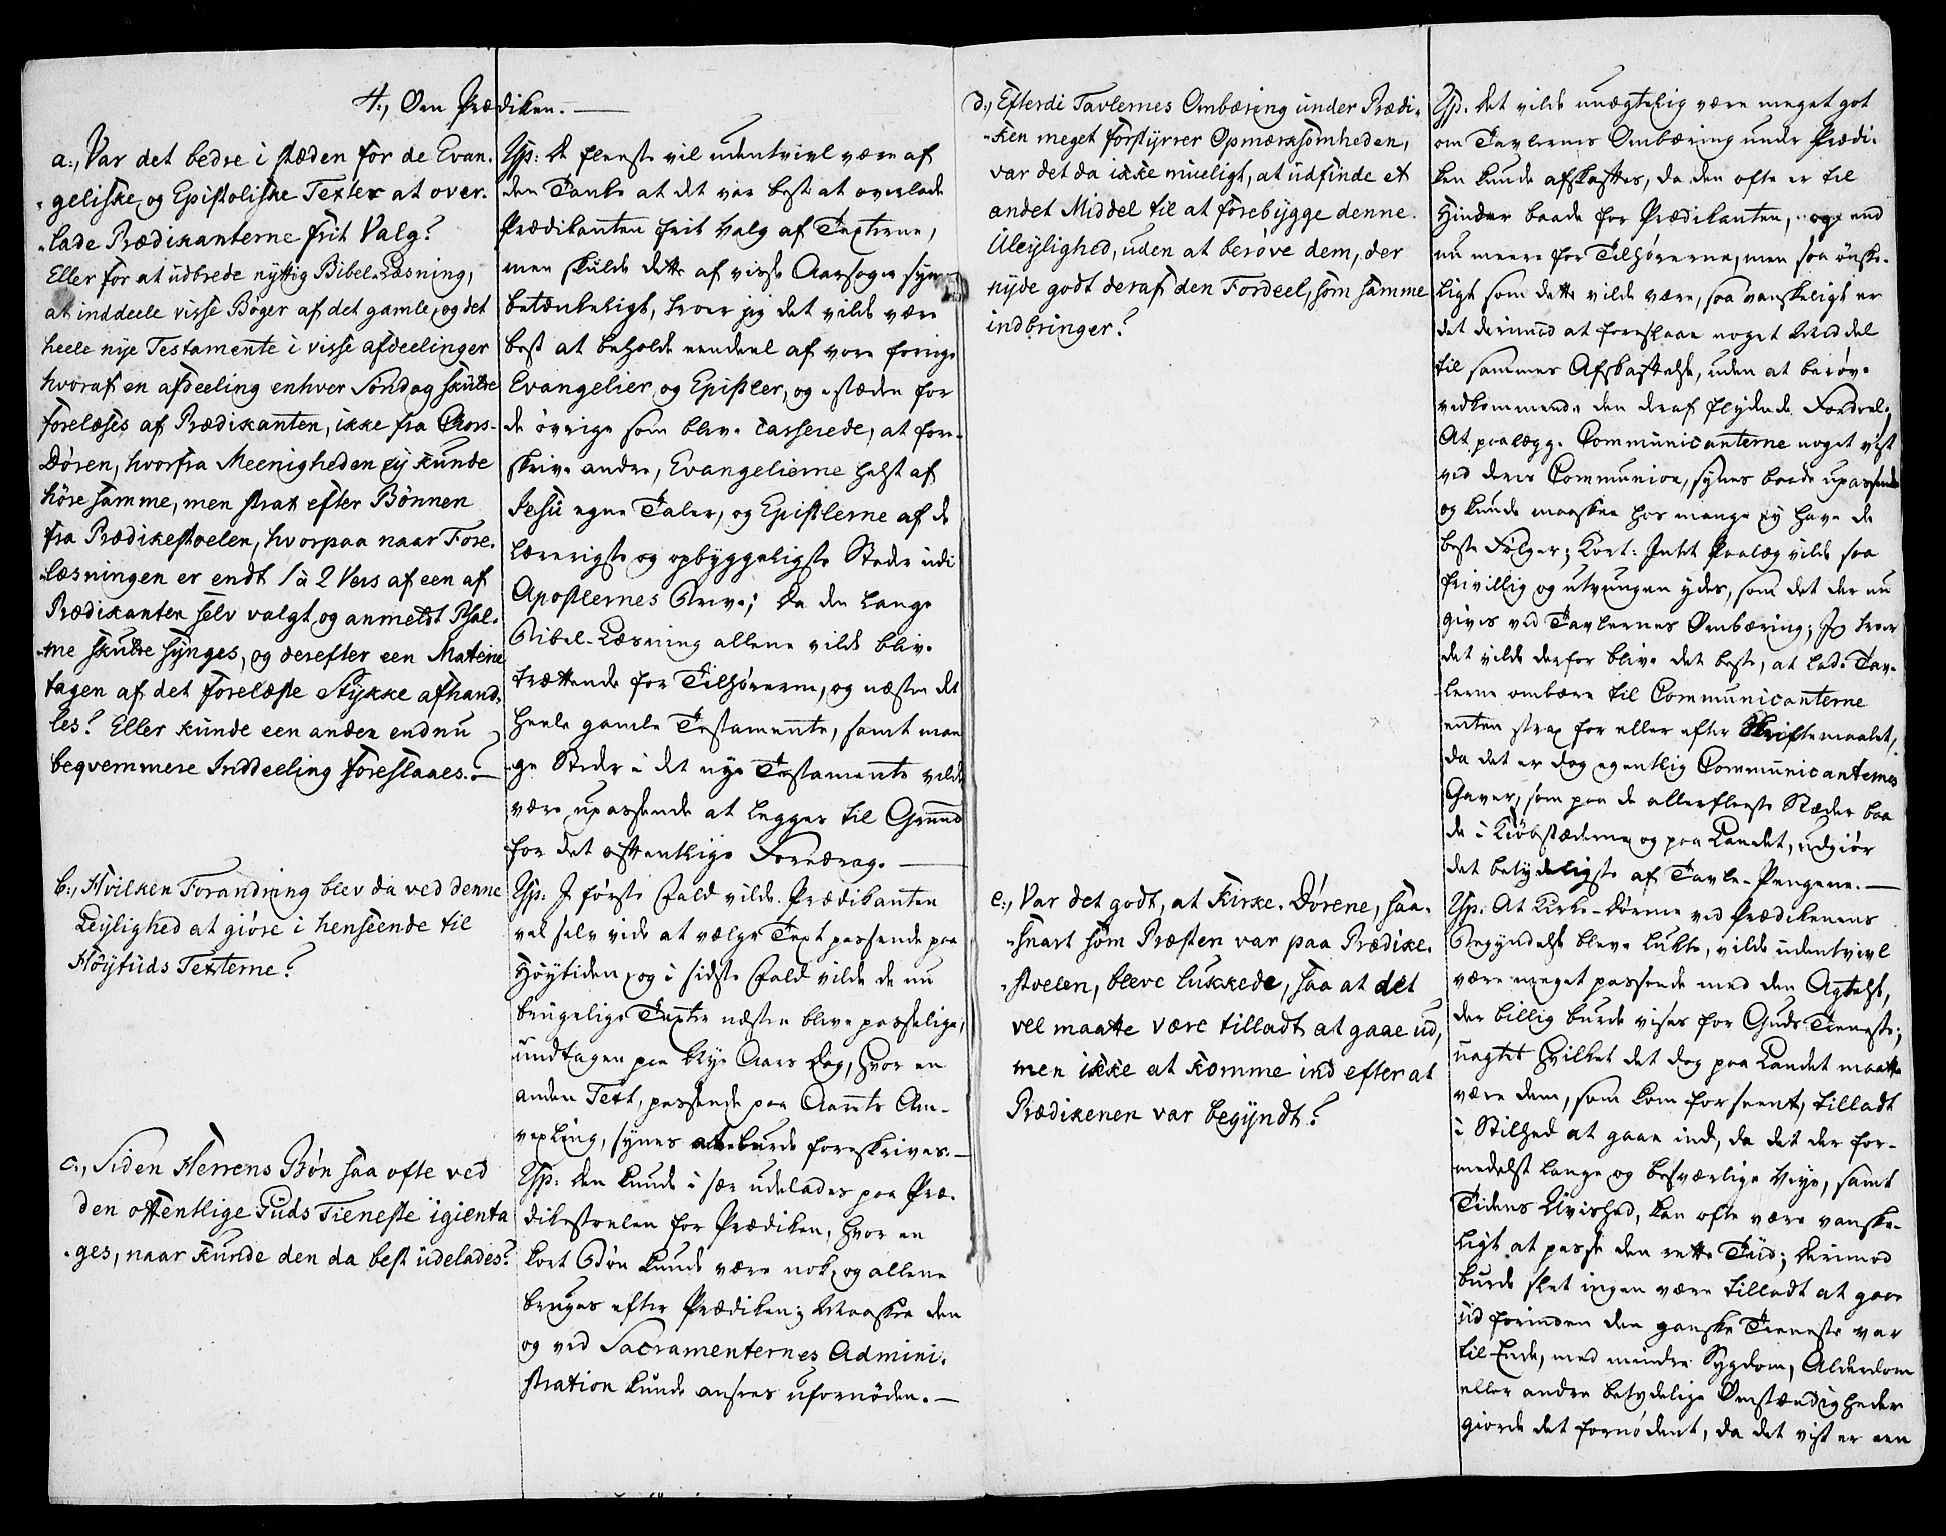 4., Om Prædiken. —
a., Var det bedre i stæden for de Evan-
-geliske og Epistoliske Texter at over-
-lade Prædikanterne frit Valg?
Eller for at udbrede nyttig Bibel-Læsning,
at inddeele visse Bøger af det gamle, og det
heele nye Testamente i visse afdeelinger
hvoraf en afdeeling enhver Søndag skulde
forelæses af Prædikanten, ikke fra Chors-
Døren, hvorfra Meenigheden ey kunde
höre samme, men strax efter Bönnen
fra Prædikestoelen, hvorpaa naar Fore-
-læsningen er endt 1 à 2 Vers af een af
Prædikanten selv valgt og anmeldt Psal-
-me skulde synges, og derefter een Materie
tagen af det forelæste Stykke afhand-
les? Eller kunde een anden endnu
beqvemmere Inddeeling foreslaaes. —
b., Hvilken Forandring blev da ved denne
Leylighed at giöre i henseende til
Höytiids Texterne?
c., Siden Herrens Bøn saa ofte ved
den offentlige Guds Tieneste igienta
-ges, naar kunde den da best udelades?
Sp: De fleeste vil udentvivl være af
den Tanke at det var best at overlade
Prædikanten frit Valg af Texterne,
men skulde dette af visse Aarsager synes
betænkeligt, troer jeg det vilde være
best at beholde eendeel af vore forrige
Evangelier og Epistler, og i stæden for
de övrige som bleve casserede, at fore-
skrive andre, Evangelierne helst af
Jesu egne Taler, og Epistlerne af de
lærerigste og opbyggeligste Steder udi
Apostlernes Breve; Da den lange
Bibel-Læsning allene vilde blive
trættende for Tilhörerne, og næsten det
heele gamle Testamente, samt man
-ge Steder i det nye Testamente vilde
være upassende at legges til Grund
for det offentlige Foredrag. —
Sp: I første Fald vilde Prædikanten
vel selv vide at vælge Text passende paa
Höytiden, og i sidste Fald vilde de nu
brugelige Texter næsten blive passelige,
undtagen paa Nye Aars Dag, hvor en
anden Text, passende paa Aarets Om-
vexling, synes at burde foreskrives. —
Sp: Den kunde i sær udelades paa Præ-
dikestoelen for Prædiken, hvor en
kort Bön kunde være nok, og allene
bruges efter Prædiken; Maaskee den
og ved Sacramenternes Admini-
stration kunde ansees ufornöden. —
d., Efterdi Tavlernes Ombæring under Prædi-
-ken meget forstyrrer Opmærksomheden,
var det da ikke mueligt, at udfinde et
andet Middel til at forebygge denne
Uleylighed, uden at berøve dem, der
nyde godt deraf den Fordeel, som samme
indbringer?
e., Var det godt, at Kirke-Dörene, saa-
-snart som Præsten var paa Prædike-
-stoelen, bleve lukkede, saa at det
vel maatte være tilladt at gaae ud,
men ikke at komme ind efter at
Prædikenen var begyndt?
Sp: Det vilde unægtelig være meget got
om Tavlernes Ombæring under Prædi-
ken kunde afskaffes, da den ofte er til
Hinder baade for Prædikanten, og end
nu meere for Tilhörerne, men saa önske-
ligt som dette vilde være, saa vanskeligt er
det derimod at foreslaae noget Middel
til sammes Afskaffelse, uden at beröve
vedkommende den deraf flydende Fordeel,
At paalægge Communicanterne noget vist
ved deres Communion, synes baade upassende
og kunde maaskee hos mange ey have de
beste Fölger; Kort: Intet Paalæg vilde saa
frivillig og utvungen ydes, som det der nu
gives ved Tavlernes Ombæring; Jeg troer
det vilde derfor blive det beste, at lade Tav-
-lerne ombære til Communicanterne
enten strax for eller efter Skriftemaalet,
da det er dog egentlig Communicanternes
Gaver, som paa de allerfleeste Stæder baa
de i Kiöbstæderne og paa Landet, udgiör
det betydeligste af Tavle-Pengene. —
Sp: At Kirke-Dörene ved Prædikenens
Begyndelse bleve lukte, vilde udentvivl
være meget passende med den Agtelse,
der billig burde vises for Guds Tieneste;
uagtet hvilket det dog paa Landet maatte
være dem, som kom for seent, tilladt
i Stilhed at gaae ind, da det der for-
medelst lange og besværlige Veye, samt
Tidens Uvished, kan ofte være vanske-
ligt at passe den rette Tiid; Derimod
burde slet ingen være tilladt at gaae
ud forinden den ganske Tieneste var
til Ende, med mindre Sygdom, Alderdom
eller andre betydelige Omstændigheder
giorde det fornödent, da det vist er een